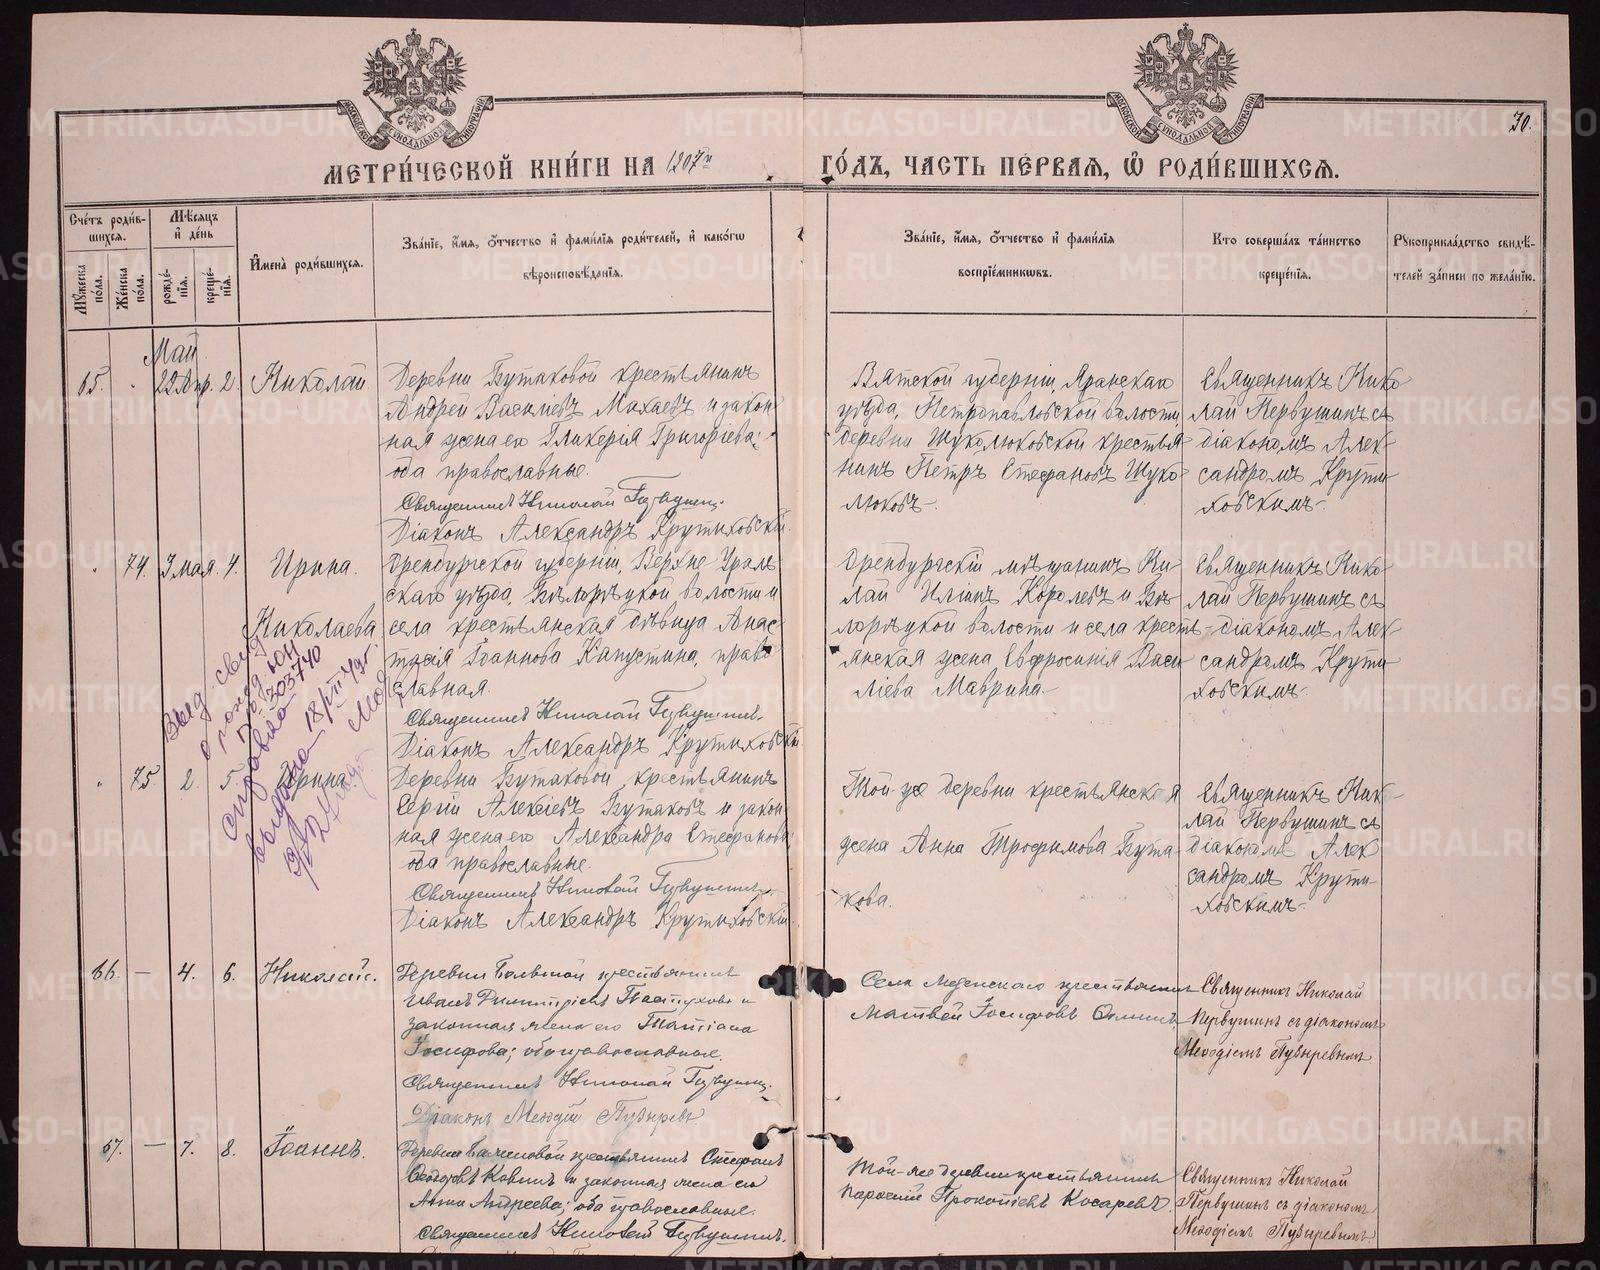 МЕТРИ́ЧЕСКОЙ КНИ́ГИ НА 1907й ГО́ДЪ, ЧАСТЬ ПЕ́РВАЯ, Ѽ РОДИ́ВШИХСЯ.
30.
Сче́тъ роди́в-
шихся.
Мужеска по́ла.
Же́нска по́ла.
Мѣ́сяцъ
и҆ де́нь
рожде́-
нїя.
креще́-
нїя.
И҆мена̀ роди́вшихся.
Зва́нїе, и҆́мя, ѻ҆́тчество и҆ фами́лїя роди́телей, и҆ како́гѡ
вѣроисповѣ́данїя.
Зва́нїе, и҆́мя, ѻ҆́тчество и҆ фами́лїя
воспрїе́мниковъ.
Кто соверша́лъ та́инство
креще́нїя.
Рукоприкла́дство свидѣ́-
телей за́писи по жела́нїю.
Май
65. 22 Апр. 2. Николай
Деревни Бутаковой крестьянинъ
Андрей Васильевъ Махаевъ и закон-
ная жена его Гликерія Григоріева;
оба православные.
Священникъ Николай Первушинъ.
Діаконъ Александръ Крутиховскій.
Вятской губерніи, Яранскаго
уѣзда, Петропавловской волости,
деревни Шуколюковской крестья-
нинъ Петръ Стефановъ Шуко-
люковъ.
Священникъ Нико-
лай Первушинъ съ
діакономъ Алек-
сандромъ Крути-
ховскимъ.
74. 3 мая. 4. Ирина.
Николаева
Оренбургской губерніи, Верхне-Ураль-
скаго уѣзда, Бѣлорѣцкой волости и
села крестьянская дѣвица Анас-
тасія Іоаннова Капустина, право-
славная.
Священникъ Николай Первушинъ.
Діаконъ Александръ Крутиховскій
Оренбургскій мѣщанинъ Ни-
лай Иліинъ Королевъ и Бѣ-
лорѣцкой волости и села кресть-
янская жена Евфросинія Васи-
ліева Маврина.
Священникъ Нико-
лай Первушинъ съ
діакономъ Алек-
сандромъ Крути-
ховскимъ.
Выд. свид.
о рожд.
303740
справка
выдана 18/VII
75. 2. 5. Ирина.
Деревни Бутаковой крестьянинъ
Сергій Алексіевъ Бутаковъ и закон-
ная жена его Александра Стефанова
оба православные.
Священникъ Николай Первушинъ.
Діаконъ Александръ Крутиховскій.
Той-же деревни крестьянская
жена Анна Трофимова Бута-
кова.
Священникъ Нико-
лай Первушинъ съ
діакономъ Алек-
сандромъ Крути-
ховскимъ.
66. — 4. 6. Николай.
Деревни крестьянинъ
Иванъ Димитріевъ Пастуховъ и
законная жена его Татіана
Іосифова; оба православные.
Священникъ Николай Первушинъ.
Діаконъ Меѳодій Пузыревъ.
Села крестьянинъ
Матвей Іосифовъ
Священникъ Николай
Первушинъ съ діакономъ
Меѳодіемъ Пузыревымъ.
67. — 7. 8. Іоаннъ.
Деревни крестьянинъ Стефанъ
Ѳеодоровъ и законная жена его
Анна Андреева; оба православные.
Священникъ Николай Первушинъ.
Той-же деревни крестьянинъ
Прокопіевъ Косаревъ.
Священникъ Николай
Первушинъ съ діакономъ
Меѳодіемъ Пузыревымъ.
METRIKI.GASO-URAL.RU